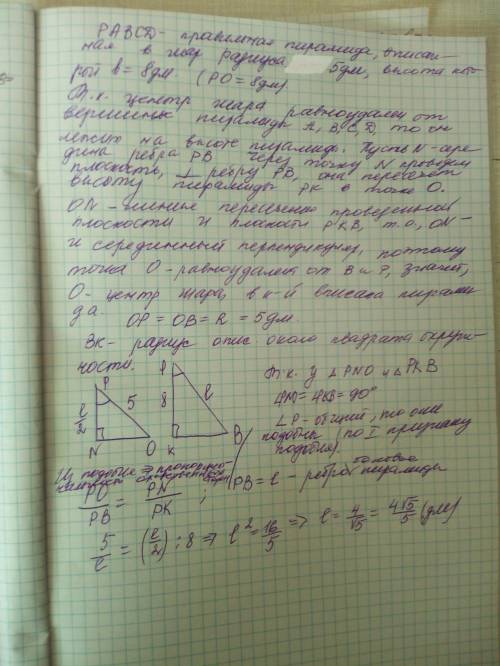 PABCD - правильная пирамида, вписан-
ная в шар радиуса 5дм, высота кото-
рой h = 8дм. (PO = 8дм)
Т.к. центр шара равноудален от
вершины пирамиды A, B, C, D, то он
лежит на высоте пирамиды. Пусть N - сере-
дина ребра PB через точку N проведем
плоскость, ⊥ ребру PB, она пересечет
высоту пирамиды PK в точке O.
ON - линия пересечения проведенной
плоскости и плоскости PKB, т.о., ON -
и серединный перпендикуляр, поэтому
точка O - равноудалена от B и P, значит,
O - центр шара, в к-й вписана пирами
да. OP = OB = R = 5дм
BK - радиус опис около квадрата окруж-
ности.
P 5 l/2 N O
P 8 l K B
Т.к. у △PNO и △PKB
∠N = ∠K = 90°
∠P - общий, то они
подобны (по I признаку
подобия).
Из подобия ⇒ пропорцио-
нальность
PO/PB = PN/PK ;
PB = l - боковое ребро пирамиды
5/l = (l/2) : 8 ⇒ l² = 16/5 ⇒ l = 4/√5 = 4√5/5 (дм)